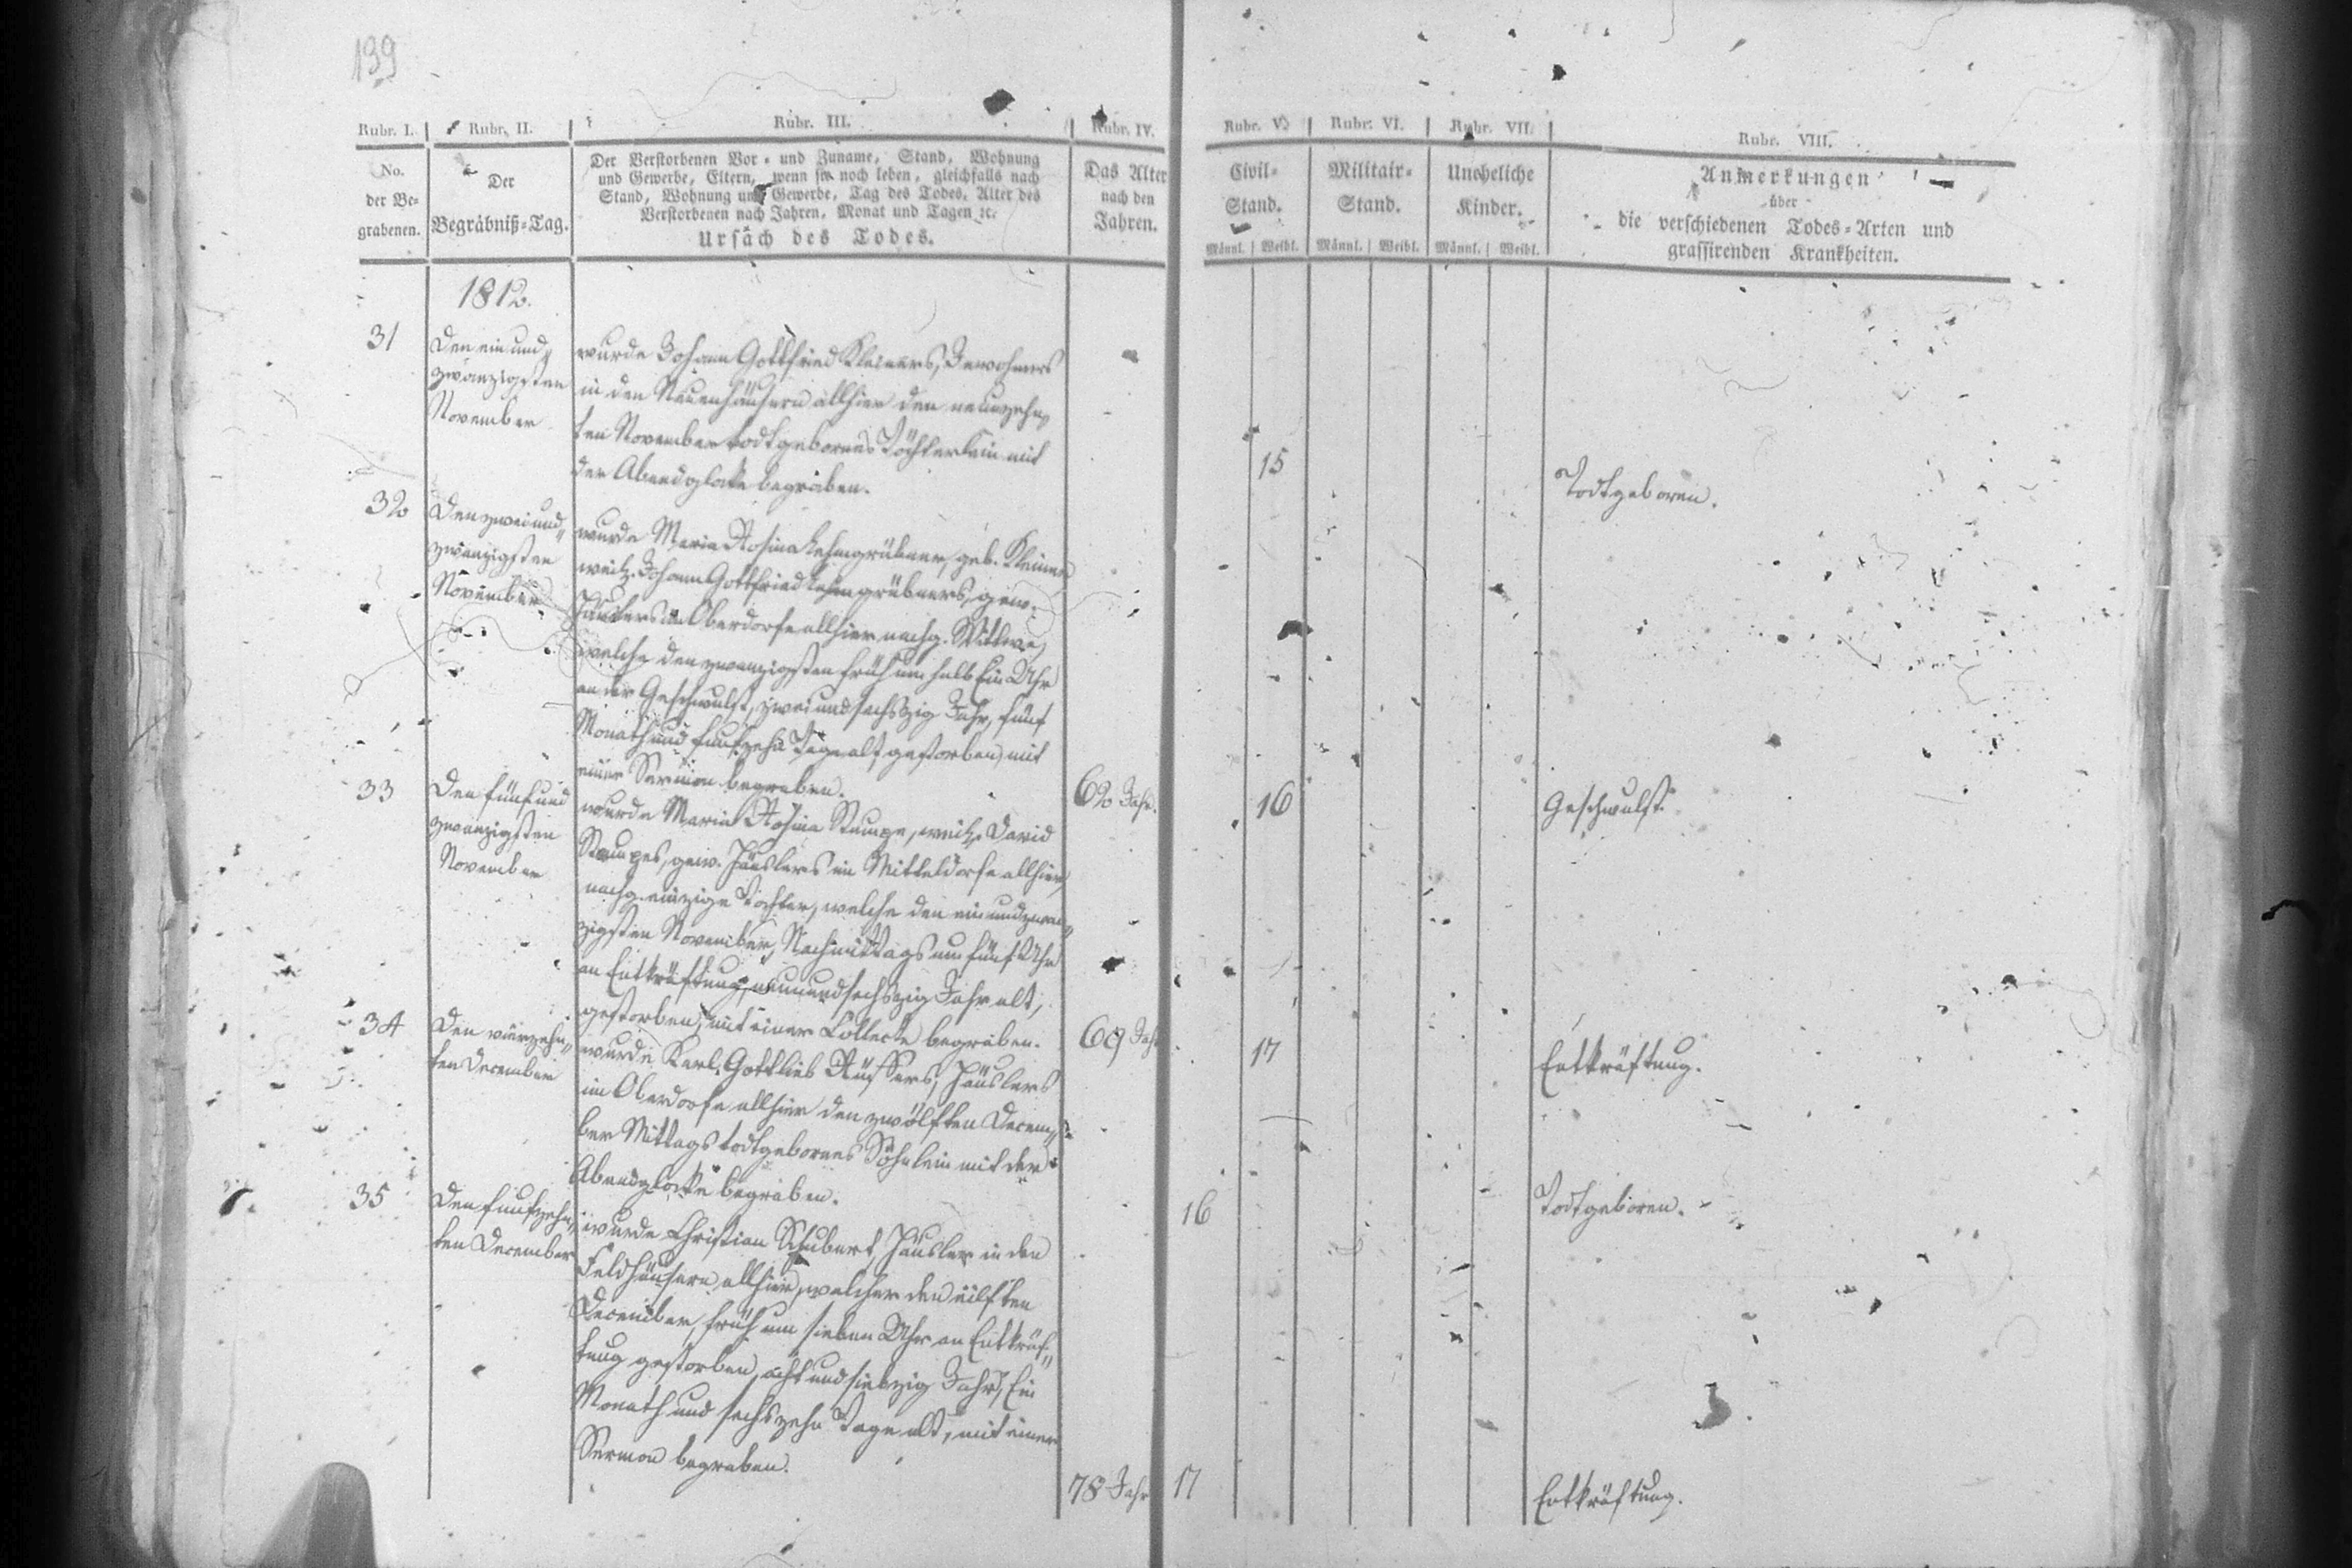 139
Rubr. I. Rubr. II. Rubr. III. Rubr. IV. Rubr. V. Rubr. VI. Rubr. VII. Rubr. VIII.
No.
der Be-
grabenen.
Der
Begräbniß-Tag.
Der Verstorbenen Vor- und Zuname, Stand, Wohnung
und Gewerbe, Eltern, wenn sie noch leben, gleichfalls nach
Stand, Wohnung und Gewerbe, Tag des Todes, Alter des
Verstorbenen nach Jahren, Monat und Tagen ꝛc.
Ursach des Todes.
Das Alter
nach den
Jahren.
Civil-
Stand.
Männl. Weibl.
Militair-
Stand.
Männl. Weibl.
Uneheliche
Kinder.
Männl. Weibl.
Anmerkungen
über
die verschiedenen Todes-Arten und
grassirenden Krankheiten.
1812.
31
Den ein und
zwanzigsten
November
wurde Johann Gottfried Kleiners, Inwohners
in den Neuenhäusern allhier den neunzehn„
ten November todtgebornes Töchterlein mit
der Abendglocke begraben.
15
Todtgeboren.
32
Den zwei und„
zwanzigsten
November
wurde Maria Rosina Lehmgrübner, geb. Kleiner,
weil. Johann Gottfried Lehmgrübners, gew.
Häuslers im Oberdorfe allhier nachg. Wittwe,
welche den zwanzigsten früh um halb Ein Uhr
an der Geschwulst, zwei und sechszig Jahr, fünf
Monath und funfzehn Tage alt gestorben, mit
einer Sermon begraben.
62 Jahr.
16
Geschwulst.
33
Den fünf und
zwanzigsten
November
wurde Maria Rosina Stumpe, weil. David
Stumpes, gew. Häuslers im Mitteldorfe allhier,
nachg. einzige Tochter, welche den ein und zwan„
zigsten November, Nachmittags um fünf Uhr
an Entkräftung, neun und sechszig Jahr alt,
gestorben, mit einer Collecte begraben.
69 Jahr
17
Entkräftung.
34
Den vierzehn„
ten December
wurde Karl Gottlieb Rüffers, Häuslers
im Oberdorfe allhier den zwölften Decem„
ber Mittags todtgebornes Söhnlein mit der
Abendglocke begraben.
16
Todtgeboren.
35
Den funfzehn„
ten December
wurde Christian Schubert, Häusler in den
Feldhäusern allhier, welcher den eilften
December, früh um sieben Uhr an Entkräf„
tung gestorben, acht und siebzig Jahr, Ein
Monath und sechszehn Tage alt, mit einer
Sermon begraben.
78 Jahr
17
Entkräftung.